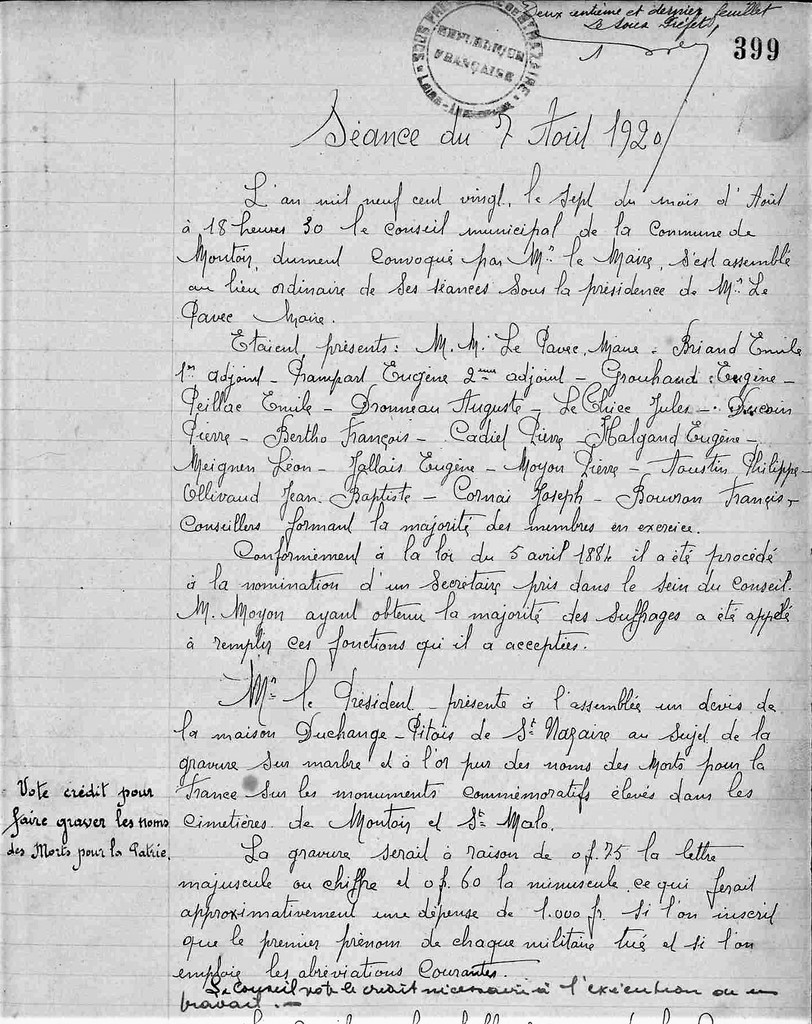 Deux centième et dernier feuillet
Le Sous Préfet,
399
RÉPUBLIQUE
FRANÇAISE
Séance du 7 Août 1920
L'an mil neuf cent vingt, le sept du mois d'Août
à 18 heures 30 le Conseil municipal de la Commune de
Montoir, dument convoqué par Mr le Maire, s'est assemblé
au lieu ordinaire de ses séances sous la présidence de Mr Le
Pavec Maire.
Etaient présents : M.M. Le Pavec, Maire - Briand Emile
1er adjoint - Prampart Eugène 2eme adjoint - Grouhand Eugène -
Peillac Emile - Dronneau Auguste - Le Chiec Jules - Ducoin
Pierre - Bertho François - Cadiet Pierre - Halgand Eugène -
Meignen Léon - Jallais Eugène - Moyon Pierre - Aoustin Philippe -
Ollivaud Jean-Baptiste - Cornai Joseph - Bouvron François -
Conseillers formant la majorité des membres en exercice.
Conformément à la loi du 5 avril 1884 il a été procédé
à la nomination d'un Secrétaire pris dans le sein du Conseil.
M. Moyon ayant obtenu la majorité des suffrages a été appelé
à remplir ces fonctions qu'il a acceptées.
Mr le Président présente à l'assemblée un devis de
la maison Duchange-Pitois de St Nazaire au sujet de la
gravure sur marbre et à l'or pur des noms des Morts pour la
France sur les monuments commémoratifs élevés dans les
cimetières de Montoir et St Malo.
Vote crédit pour
faire graver les noms
des Morts pour la Patrie.
La gravure serait à raison de 0f.75 la lettre
majuscule ou chiffre et 0f.60 la minuscule ce qui ferait
approximativement une dépense de 1.000 fr. si l'on inscrit
que le premier prénom de chaque militaire tué et si l'on
emploie les abréviations courantes.
Le Conseil vote le crédit nécessaire à l'exécution de ce
travail. -